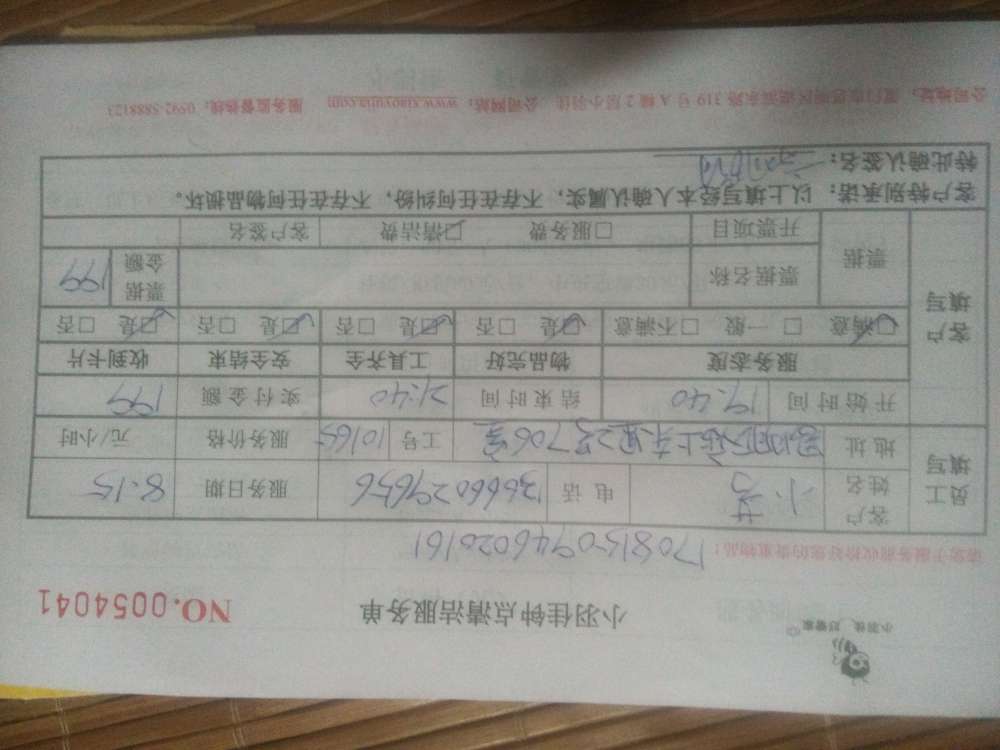 小羽佳 好管家
小羽佳钟点清洁服务单
NO.0054041
请您于服务前收拾好您的贵重物品！
1708150946020161
员工填写
客户姓名 小 电话 13666029656 服务日期 8.15
地址 706室 工号 10165 服务价格 元/小时
客户填写
开始时间 19:40 结束时间 21:40 实付金额 199
服务态度 物品完好 工具齐全 安全结束 收到卡片
☑满意 □一般 □不满意 ☑是 □否 ☑是 □否 ☑是 □否 ☑是 □否
票据 票据名称 票据金额 199
开票项目 □服务费 □清洁费 客户签名
客户特别承诺：以上填写经本人确认属实，不存在任何纠纷，不存在任何物品损坏。
特此确认签名：
公司地址：厦门市思明区湖滨南路 319 号 A 幢 2 层小羽佳 公司网站：www.xiaoyujia.com 服务监督热线：0592-5888123